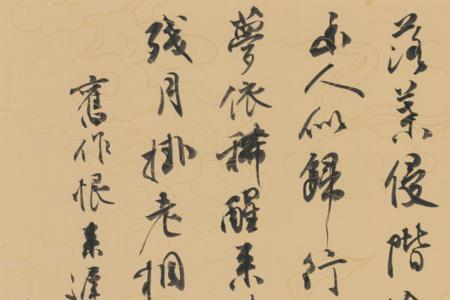 落葉侵階
人似歸行
夢依稀醒來
殘月掛老桐
舊作恨未遲